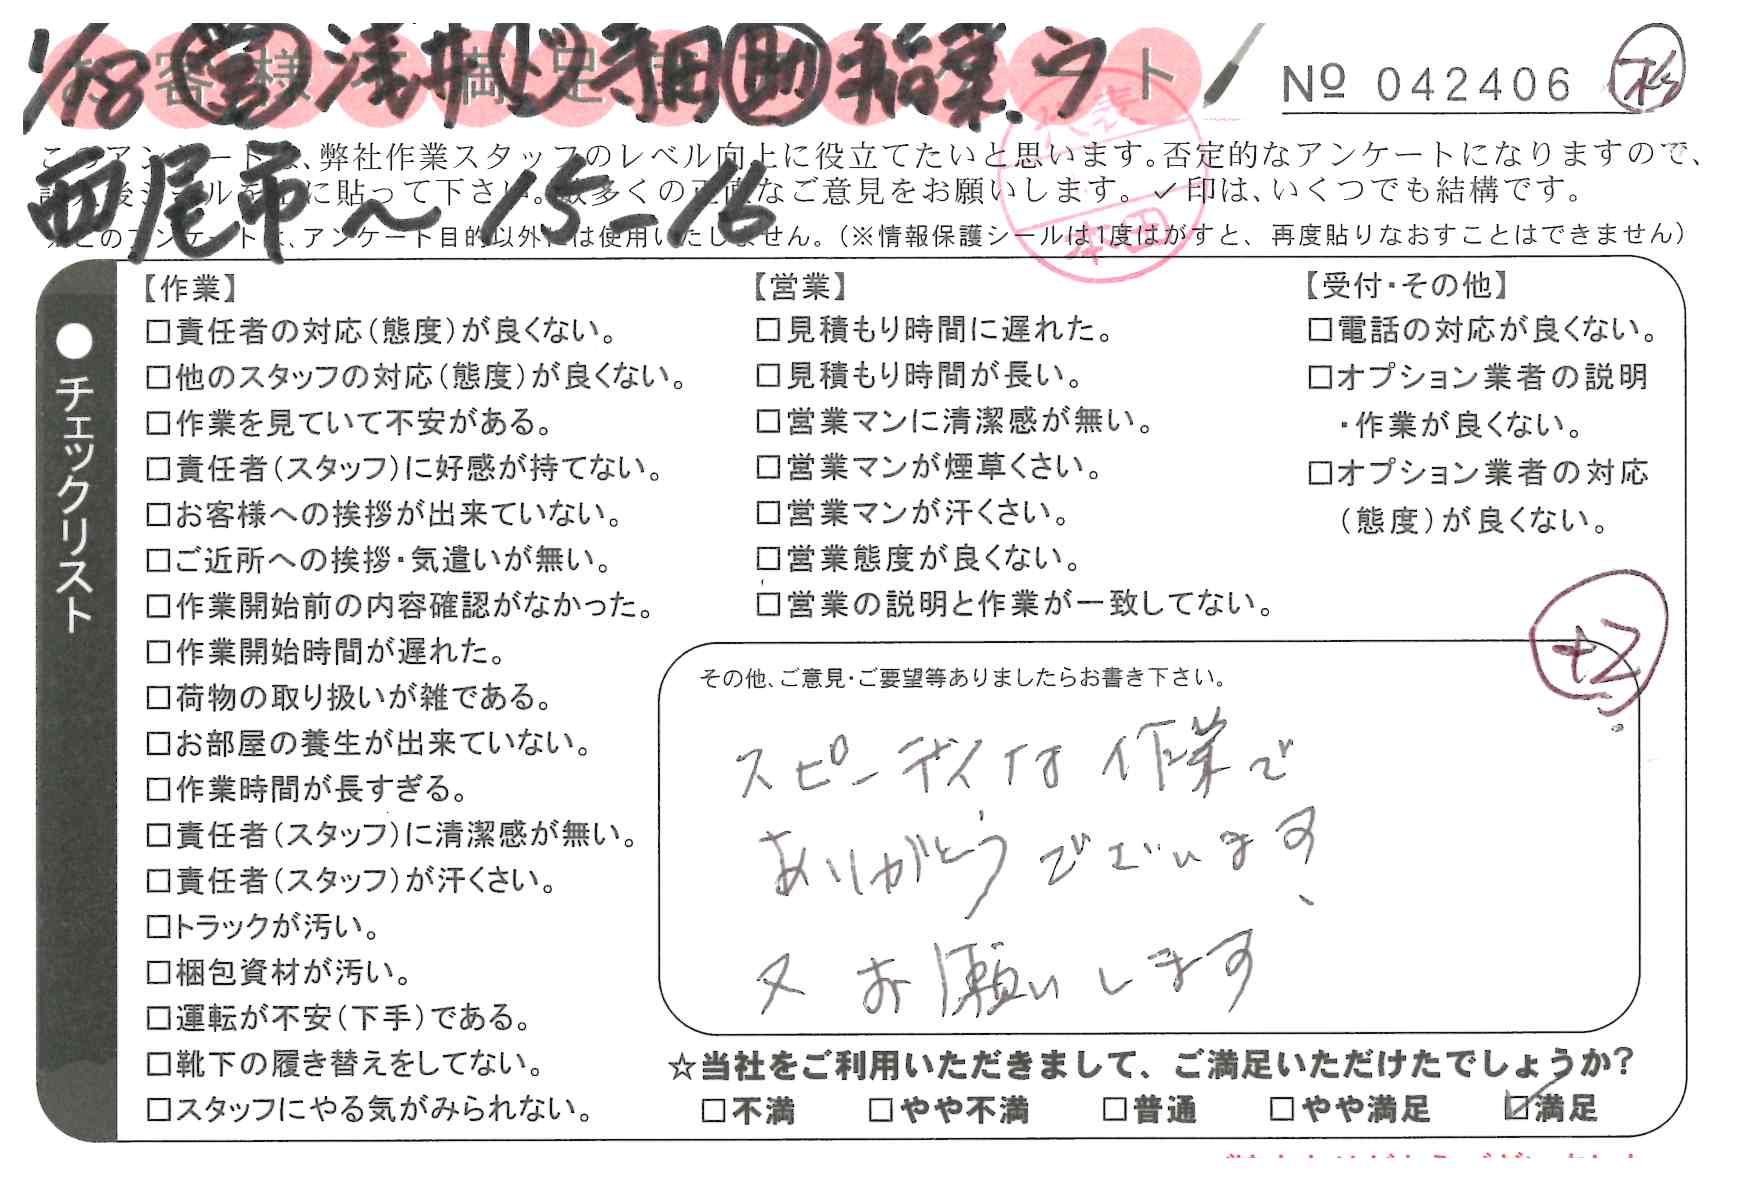 1/18 営 浅井 ド 寺田 助 稲葉
№ 042406
このアンケートは、弊社作業スタッフのレベル向上に役立てたいと思います。否定的なアンケートになりますので、
数多くの正直なご意見をお願いします。✓印は、いくつでも結構です。
西尾市〜15-16
※このアンケートは、アンケート目的以外には使用いたしません。(※情報保護シールは1度はがすと、再度貼りなおすことはできません)
代表
本田
●チェックリスト
【作業】
□責任者の対応(態度)が良くない。
□他のスタッフの対応(態度)が良くない。
□作業を見ていて不安がある。
□責任者(スタッフ)に好感が持てない。
□お客様への挨拶が出来ていない。
□ご近所への挨拶・気遣いが無い。
□作業開始前の内容確認がなかった。
□作業開始時間が遅れた。
□荷物の取り扱いが雑である。
□お部屋の養生が出来ていない。
□作業時間が長すぎる。
□責任者(スタッフ)に清潔感が無い。
□責任者(スタッフ)が汗くさい。
□トラックが汚い。
□梱包資材が汚い。
□運転が不安(下手)である。
□靴下の履き替えをしてない。
□スタッフにやる気がみられない。
【営業】
□見積もり時間に遅れた。
□見積もり時間が長い。
□営業マンに清潔感が無い。
□営業マンが煙草くさい。
□営業マンが汗くさい。
□営業態度が良くない。
□営業の説明と作業が一致してない。
【受付・その他】
□電話の対応が良くない。
□オプション業者の説明
・作業が良くない。
□オプション業者の対応
(態度)が良くない。
+2
その他、ご意見・ご要望等ありましたらお書き下さい。
スピーディな作業で
ありがとうございます、
又お願いします
☆当社をご利用いただきまして、ご満足いただけたでしょうか?
□不満 □やや不満 □普通 □やや満足 ☑満足